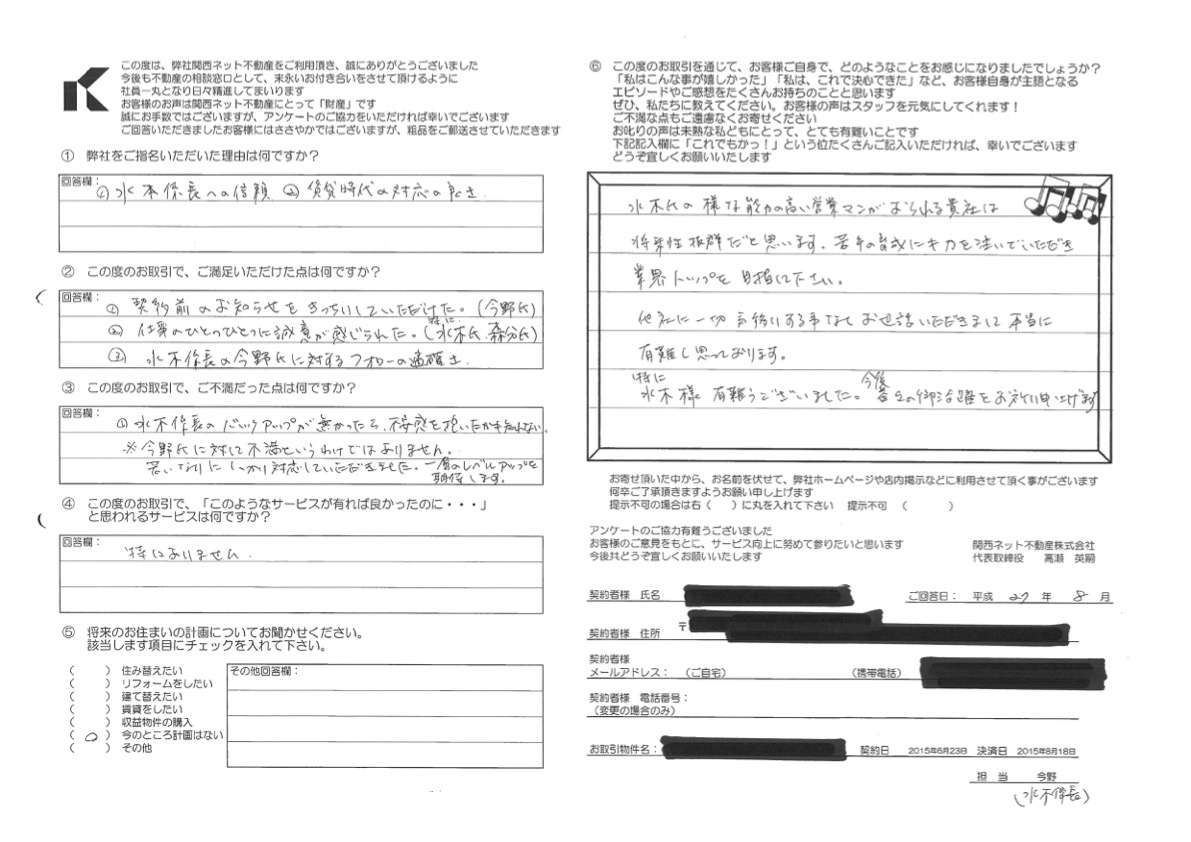 この度は、弊社関西ネット不動産をご利用頂き、誠にありがとうございました
今後も不動産の相談窓口として、末永いお付き合いをさせて頂けるように
社員一丸となり日々精進してまいります
お客様のお声は関西ネット不動産にとって「財産」です
誠にお手数ではございますが、アンケートのご協力をいただければ幸いでございます
ご回答いただきましたお客様にはささやかではございますが、粗品をご郵送させていただきます
① 弊社をご指名いただいた理由は何ですか？
回答欄：
① 水木係長への信頼 ② 賃貸時代の対応の良さ.
② この度のお取引で、ご満足いただけた点は何ですか？
回答欄：
① 契約前のお知らせをきっちりしていただけた。(今野氏)
② 仕事のひとつひとつに誠意が感じられた。(特に水木氏.森分氏)
③ 水木係長の今野氏に対するフォローの適確さ.
③ この度のお取引で、ご不満だった点は何ですか？
回答欄：
① 水木係長のバックアップが無かったら、不安感を抱いたかも知れない。
※今野氏に対して不満というわけではありません。
若いなりにしっかり対応していただきました。一層のレベルアップを
期待します。
④ この度のお取引で、「このようなサービスが有れば良かったのに・・・」
と思われるサービスは何ですか？
回答欄：
特にありません.
⑤ 将来のお住まいの計画についてお聞かせください。
該当します項目にチェックを入れて下さい。
（　　） 住み替えたい
（　　） リフォームをしたい
（　　） 建て替えたい
（　　） 賃貸をしたい
（　　） 収益物件の購入
（ ○ ） 今のところ計画はない
（　　） その他
その他回答欄：
⑥ この度のお取引を通じて、お客様ご自身で、どのようなことをお感じになりましたでしょうか？
「私はこんな事が嬉しかった」「私は、これで決心できた」など、お客様自身が主語となる
エピソードやご感想をたくさんお持ちのことと思います
ぜひ、私たちに教えてください。お客様の声はスタッフを元気にしてくれます！
ご不満な点もご遠慮なくお寄せください
お叱りの声は未熟な私どもにとって、とても有難いことです
下記記入欄に「これでもかっ！」という位たくさんご記入いただければ、幸いでございます
どうぞ宜しくお願いいたします
水木氏の様な能力の高い営業マンがおられる貴社は
将来性抜群だと思います。若手の育成に力を注いでいただき
業界トップを目指して下さい。
他社に一切見劣りする事なくお世話いただきまして本当に
有難く思っております。
特に水木様 有難うございました。今後の御活躍をお祈り申し上げます
お寄せ頂いた中から、お名前を伏せて、弊社ホームページや店内掲示などに利用させて頂く事がございます
何卒ご了承頂きますようお願い申し上げます
提示不可の場合は右（　）に丸を入れて下さい　提示不可 （　　　）
アンケートのご協力有難うございました
お客様のご意見をもとに、サービス向上に努めて参りたいと思います
今後共どうぞ宜しくお願いいたします
関西ネット不動産株式会社
代表取締役　高瀬　英嗣
契約者様 氏名
ご回答日： 平成 27 年 8 月
契約者様 住所 〒
契約者様
メールアドレス：（ご自宅） （携帯電話）
契約者様 電話番号：
（変更の場合のみ）
お取引物件名： 契約日 2015年6月23日 決済日 2015年8月18日
担 当 今野
(水木係長)